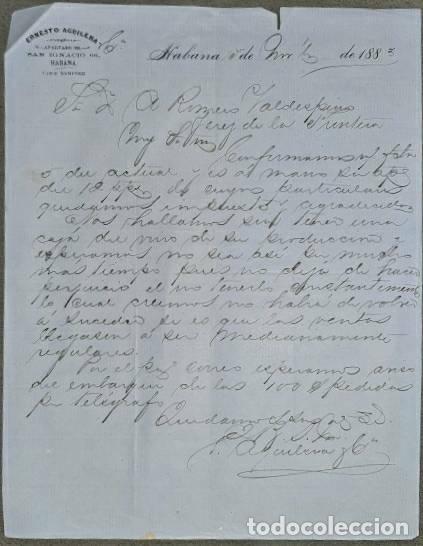 ERNESTO AGUILERA y Ca.
APARTADO
SAN IGNACIO
HABANA
Habana de Nov. de 1883
Sr. D. A. Romero Valdespino
Jerez de la Frontera
Muy Sr. mio
Confirmamos
del actual y es a mano su
de cuyos particulares
quedamos impuestos y agradecidos.
Nos hallamos sin tener una
caja de vino de su produccion y
esperamos no sea asi su mucho
mas tiempo pues no deja de hacer
perjuicio el no tenerlo constantemente
lo cual creemos no habrá de volver
á suceder si es que las ventas
llegasen á ser medianamente
regulares.
Por el correo esperamos aviso
de embarque de las 100 pedidas
por telégrafo.
Quedamos de V.
E. Aguilera y Ca
todocoleccion.net